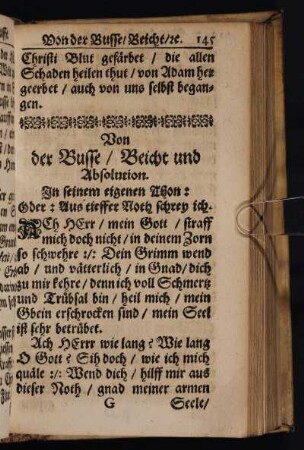 Von der Busse/ Beicht/ꝛc. 145
Christi Blut gefärbet / die allen
Schaden heilen thut / von Adam her
geerbet / auch von uns selbst began-
gen.
Von
der Busse / Beicht und
Absolution.
In seinem eigenen Thon:
Oder: Aus tieffer Noth schrey ich.
ACh HErr / mein Gott / straff
mich doch nicht / in deinem Zorn
so schwehre :/: Dein Grimm wend
ab / und vätterlich / in Gnad / dich
zu mir kehre / denn ich voll Schmertz
und Trübsal bin / heil mich / mein
Gbein erschrocken sind / mein Seel
ist sehr betrübet.
Ach HErr wie lang? Wie lang
O Gott? Sih doch / wie ich mich
quäle :/: Wend dich / hilff mir aus
dieser Noth / gnad meiner armen
G Seele/